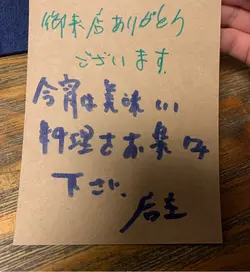 御来店ありがとう
ございます.
今宵は美味しい
料理をお楽しみ
下さい.
店主